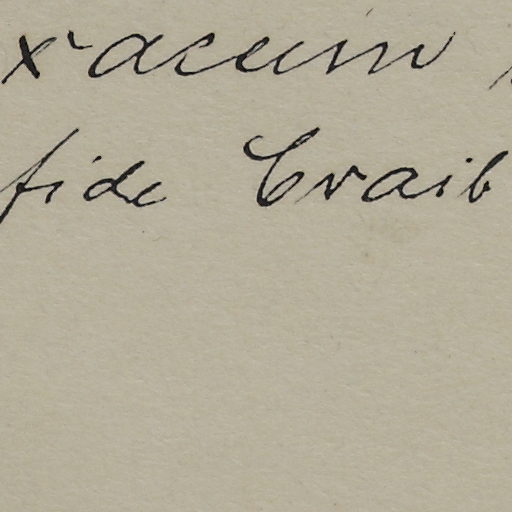 xacum
fide Craib